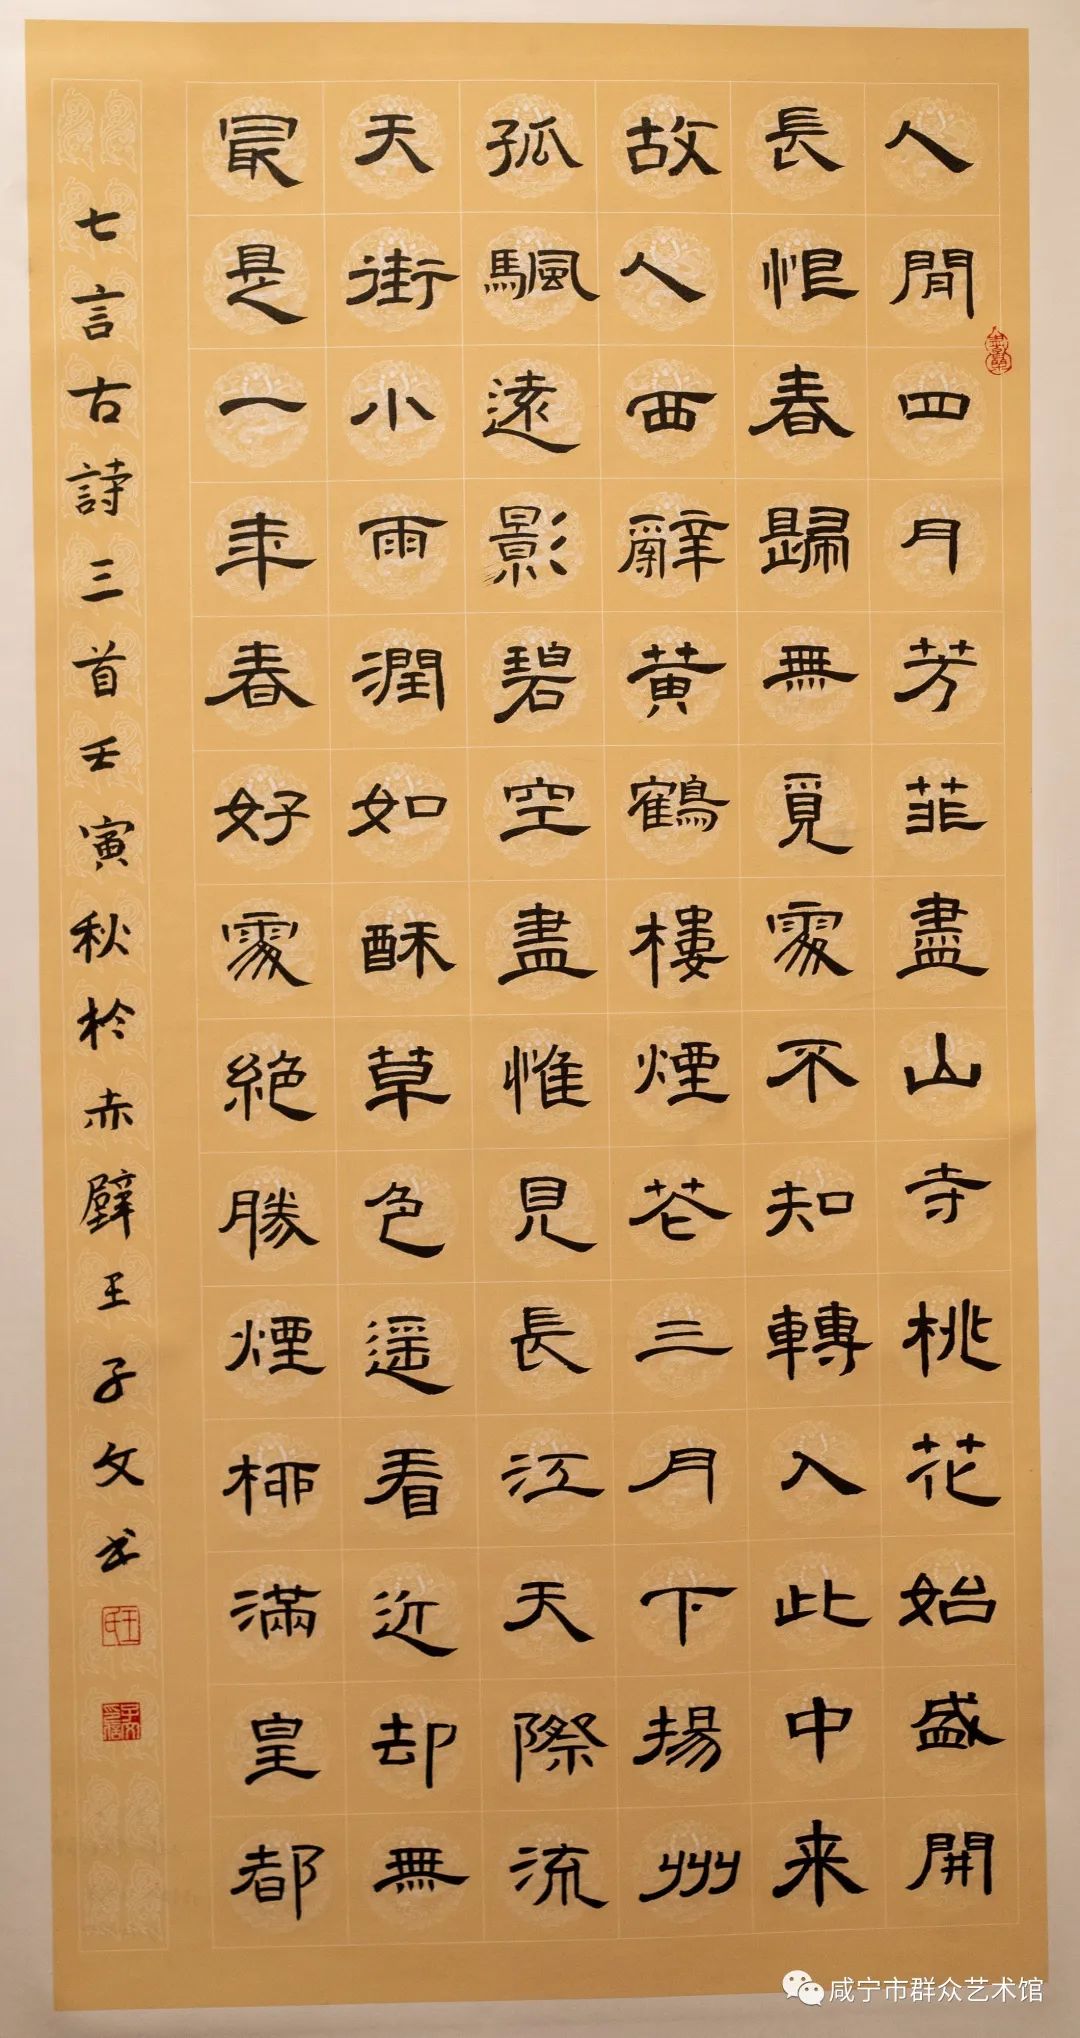 人間四月芳菲盡山寺桃花始盛開
長恨春歸無覓處不知轉入此中来
故人西辭黃鶴樓煙花三月下揚州
孤颿遠影碧空盡惟見長江天際流
天街小雨潤如酥草色遥看近却無
最是一年春好處絕勝煙柳滿皇都
七言古詩三首壬寅秋於赤壁王子文书
咸宁市群众艺术馆